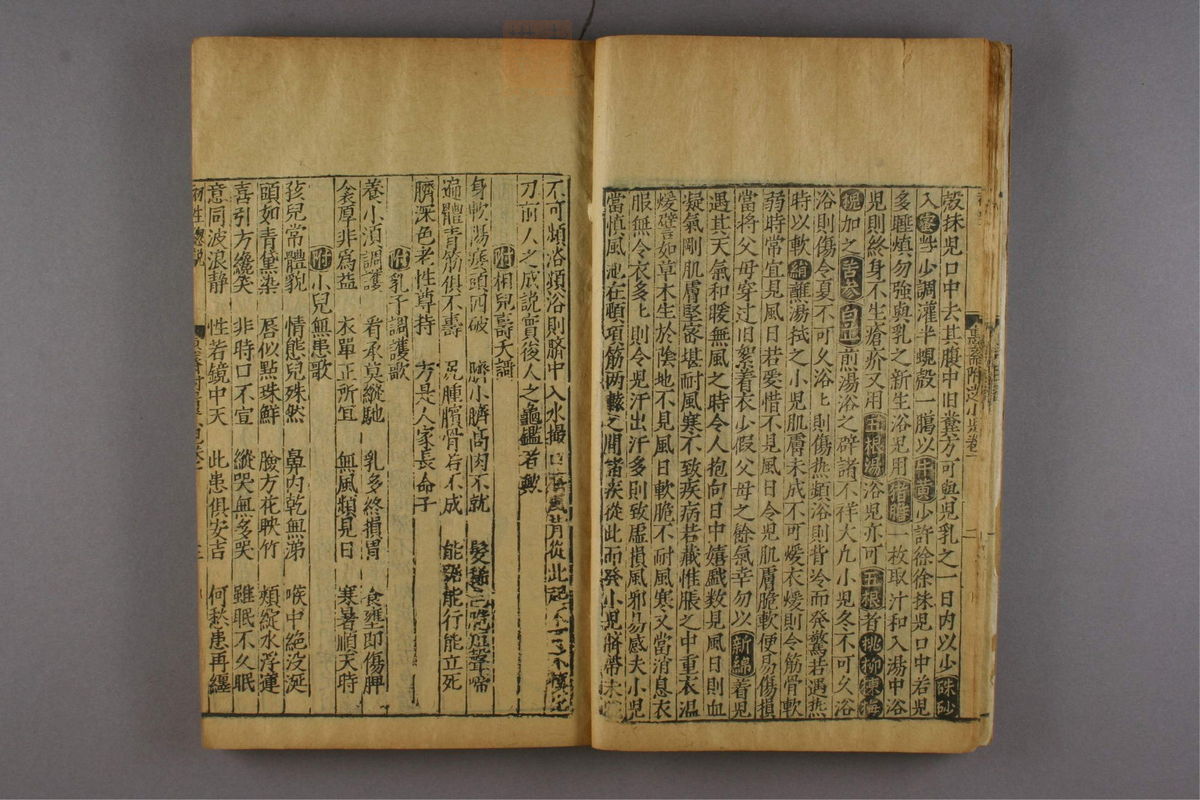 殻抹児口中去其腹中旧糞方可與児乳之一日内以少硃砂
入蜜些少調灌半蜆殻一腸以牛黄少許徐徐抹児口中若児
多睡慎勿強與乳之新生浴児用猪膽一枚取汁和入湯中浴
児則終身不生瘡疥又用五根湯浴児亦可五根者桃柳楝梅
槐加之苦参白芷煎湯浴之辟諸不祥大凢小児冬不可久浴
浴則傷令夏不可久浴〻則傷热頻浴則背冷而発驚若遇热
時以軟絹蘸湯拭之小児肌膚未成不可煖衣煖則令筋骨軟
弱時常宜見風日若愛惜不見風日令児肌膚脆軟便易傷損
當将父母穿过旧絮着衣少假父母之餘氣幸勿以新綿着児
遇其天氣和暖無風之時令人抱向日中嬉戲数見風日則血
凝氣剛肌膚堅密堪耐風寒不致疾病若藏惟脹之中重衣温
煖譬如草木生於陰地不見風日軟脆不耐風寒又當消息衣
服無令衣多〻則令児汗出汗多則致虚損風邪易感夫小児
當慎風池在頭項筋两轅之間諸疾従此而発小児臍帯未
不可頻浴頻浴則臍中入水撮口臍風皆従此起
刀前人之成説實後人之龜鑑者歟
附相児壽夭謌
身軟湯痿頭四破 臍小臍高肉不就 髮稀 聲啼
遍體青筋俱不壽 尻腫臏骨若不成 能踞能行能立死
臍深色老性尊持 方是人家長命子
附乳子調護歌
養小湏調護 看承莫縱馳 乳多終損胃 食壅即傷脾
衾厚非為益 衣單正所宜 無風頻見日 寒暑順天時
附小兒無患歌
孩兒常體貌 情態兒殊然 鼻内乾無涕 喉中絶没涎
頭如青黛染 唇似點珠鮮 臉方花映竹 頰綻水浮蓮
喜引方纔笑 非時口不宣 縱哭無多哭 雖眠不久眠
意同波浪静 性若鏡中天 此患俱安吉 何愁患再纏